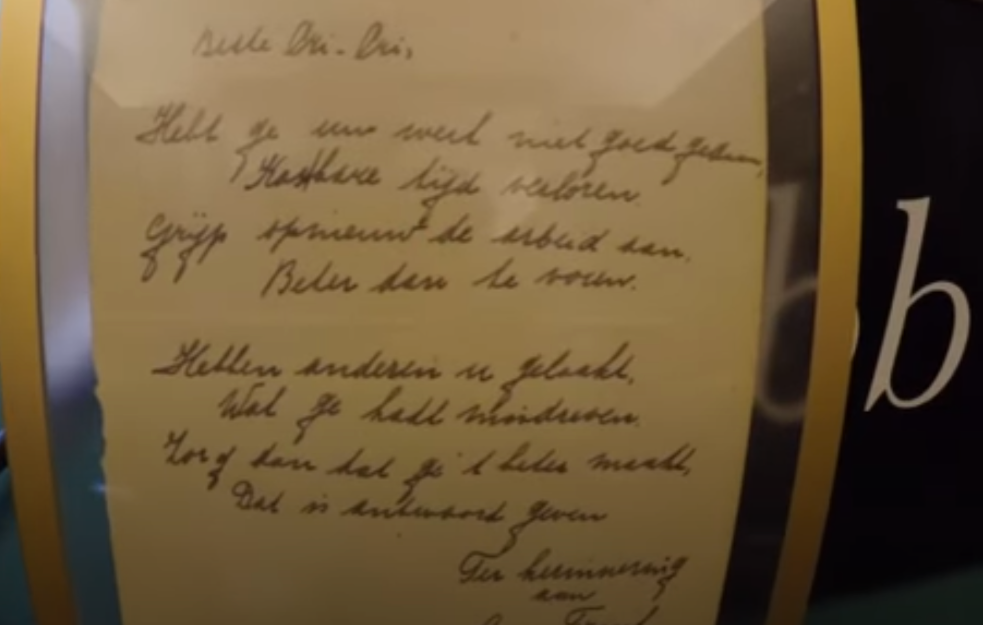 Beste Cri-Cri,
Hebt ge uw werk niet goed gedaan,
Kostbare tijd verloren
Grijp opnieuw de arbeid aan.
Beter dan te voren.
Hebben anderen u gelaakt,
Wat ge hadt misdreven.
Zorg dan dat ge 't beter maakt,
Dat is antwoord geven
Ter herinnering
aan
b